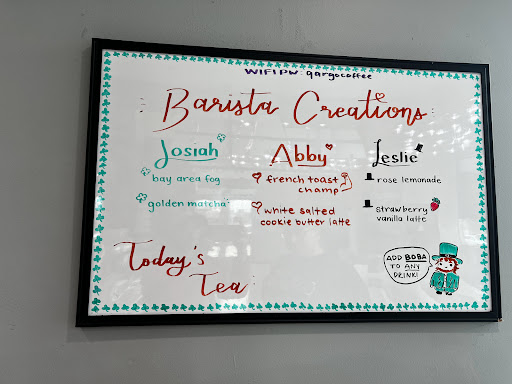 WIFI PW: qargocoffee
Barista Creations
Josiah
bay area fog
golden matcha
Abby
french toast
champ
white salted
cookie butter latte
Leslie
rose lemonade
strawberry
vanilla latte
Today's
Tea:
ADD BOBA
TO ANY
DRINK!